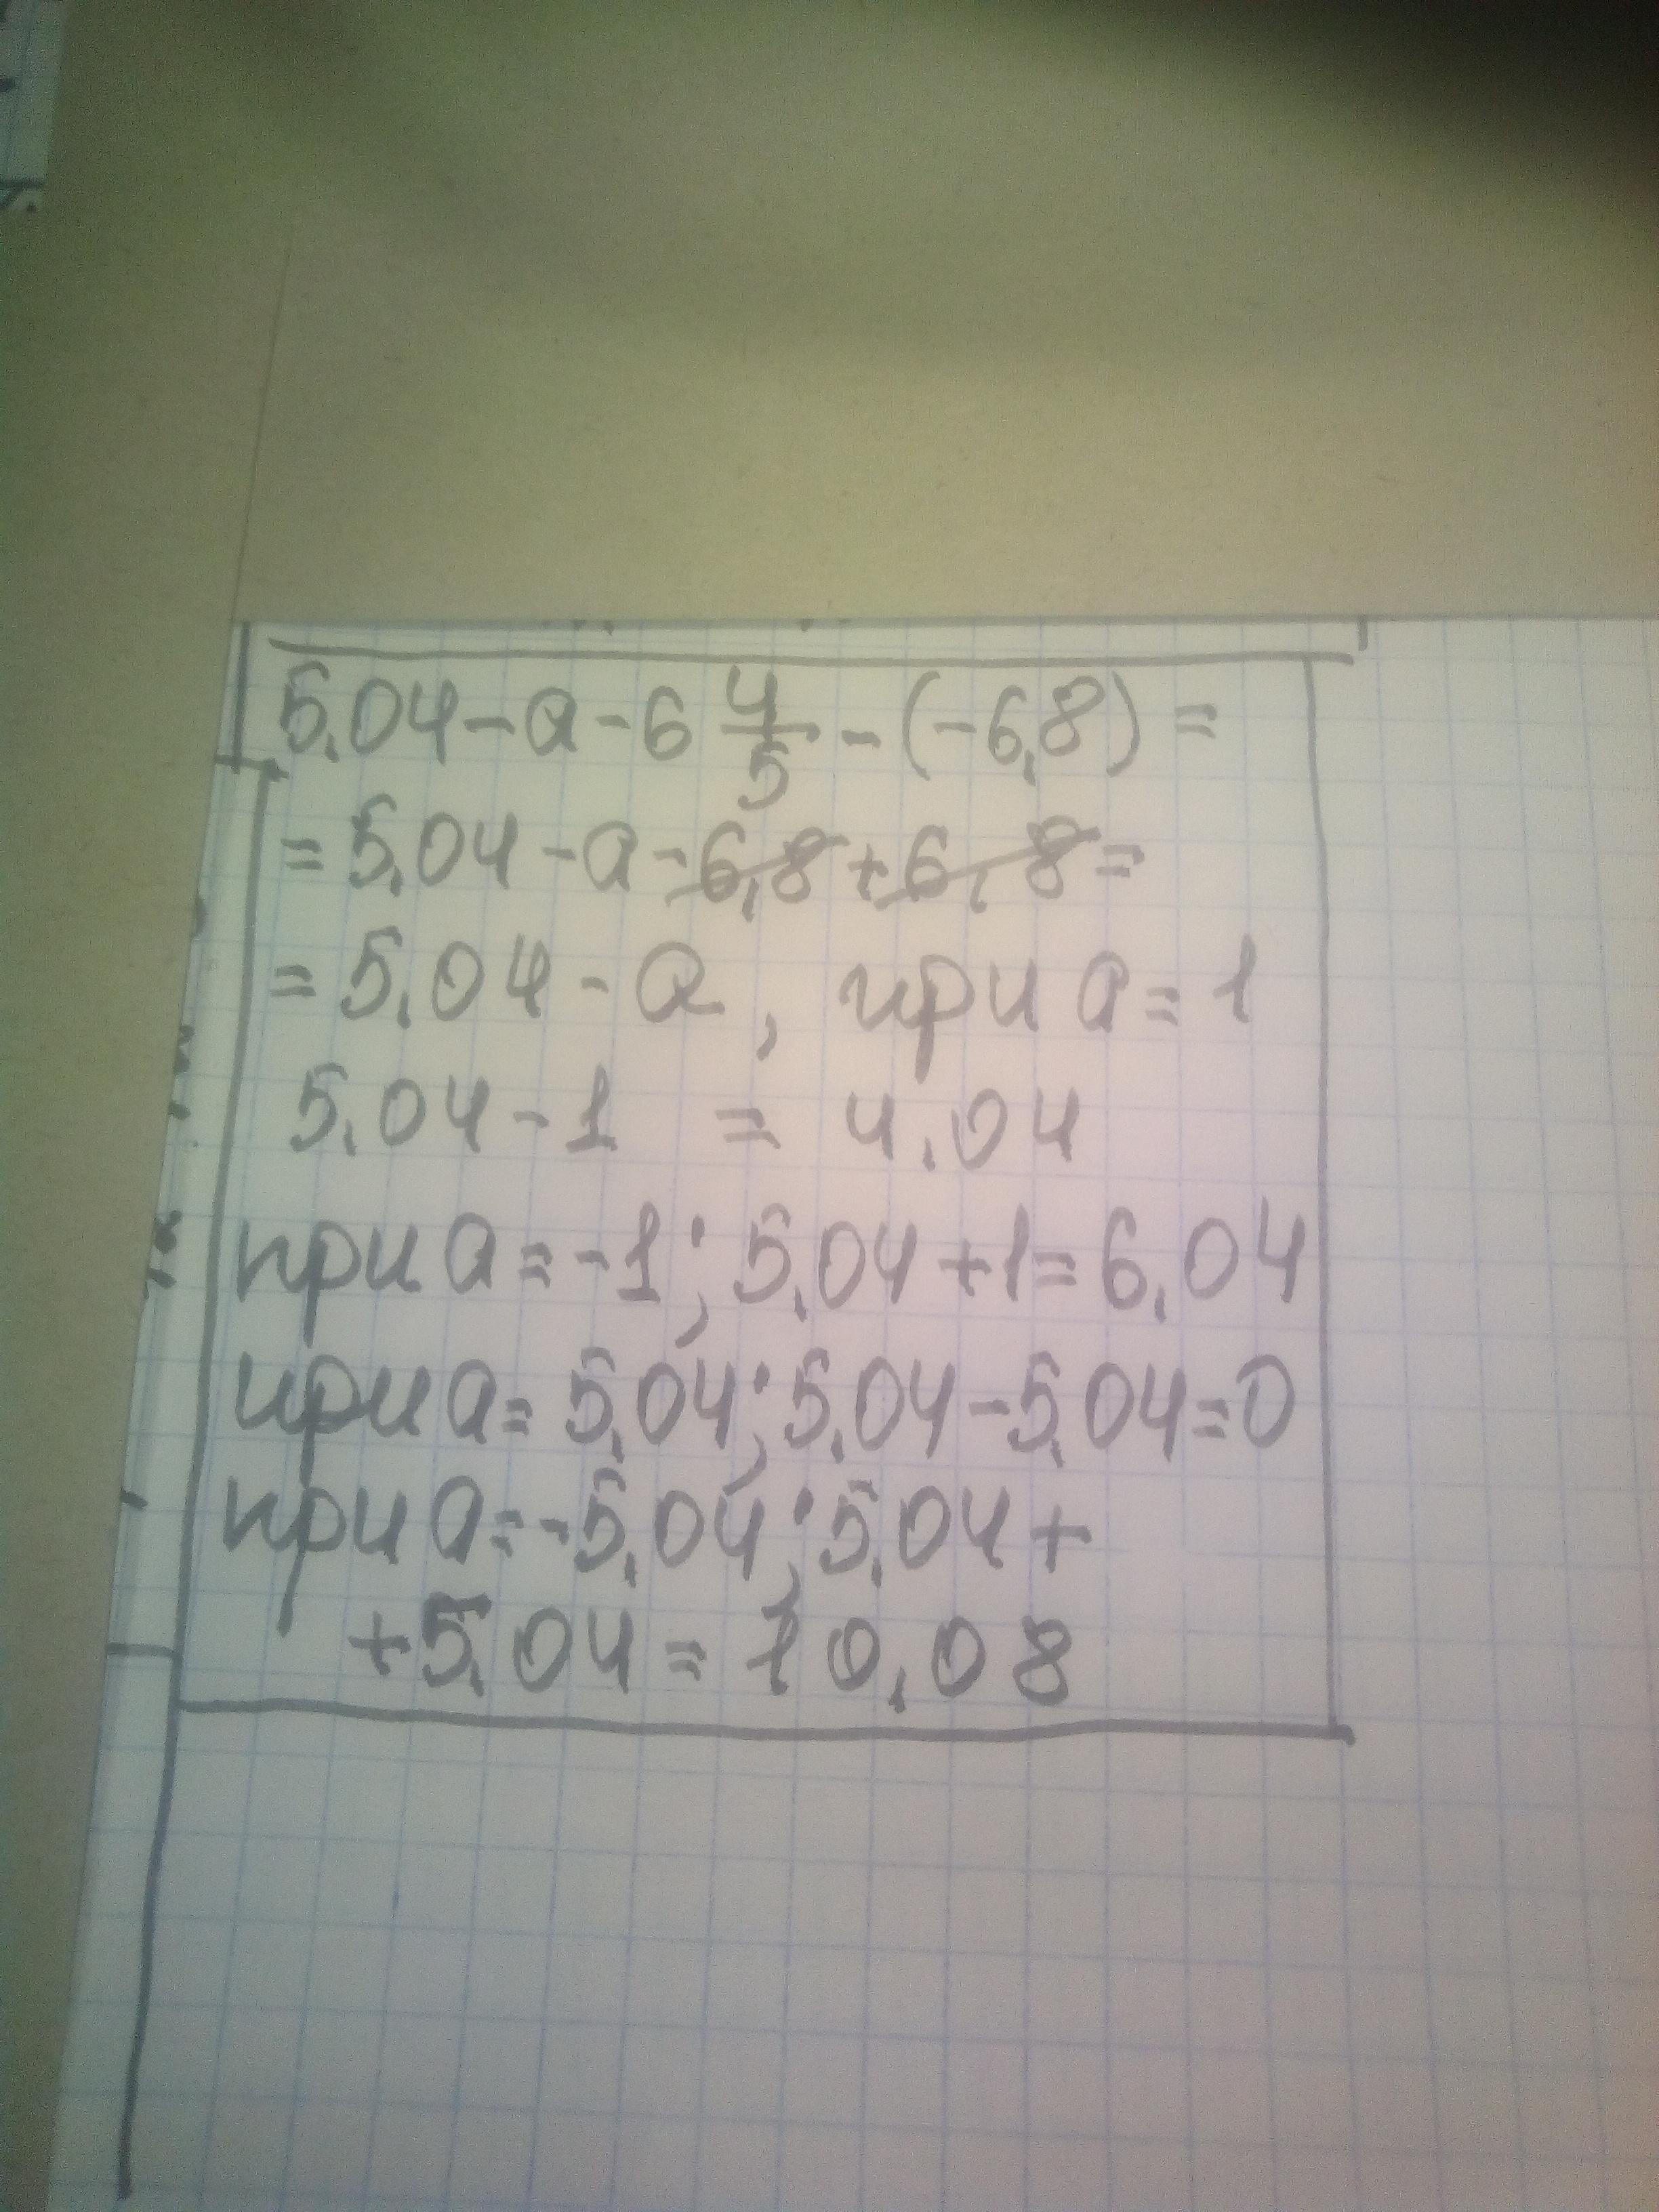 5,04-а-6 4/5-(-6,8)=
=5,04-а-6,8+6,8=
=5,04-а, при а=1
5,04-1 = 4,04
при а=-1; 5,04+1=6,04
при а=5,04; 5,04-5,04=0
при а=-5,04; 5,04+
+5,04=10,08